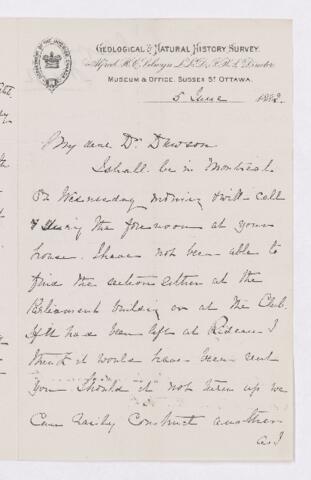 GEOLOGICAL & NATURAL HISTORY SURVEY.
Alfred R. C. Selwyn L.L.D., F.R.S. Director
MUSEUM & OFFICE. SUSSEX ST OTTAWA.
5 June 1882.
My dear Dr Dawson
I shall be in Montreal
on Wednesday morning & will call
during the forenoon at your
house. I have not been able to
find the section either at the
Parliament building or at the Club.
If it had been left at I
think it would have been sent
you should "it" not turn up we
can easily construct another
as I